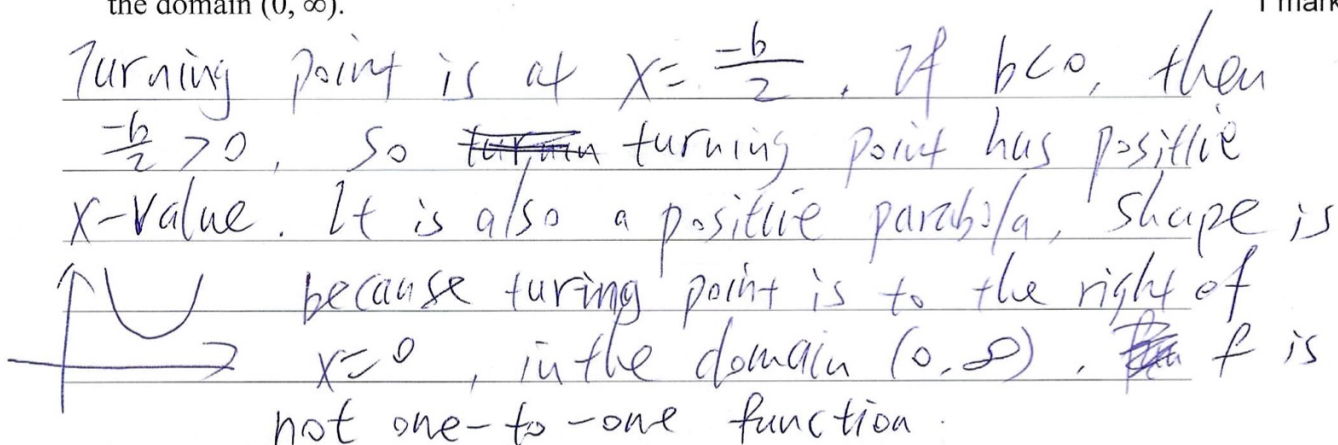 the domain (0, ∞).
1 mark
Turning point is at x = -b/2 . If b<0, then
-b/2 > 0, so turning point has positive
x-value. It is also a positive parabola, shape is
because turing point is to the right of
x=0, in the domain (0,∞), f is
not one-to-one function.